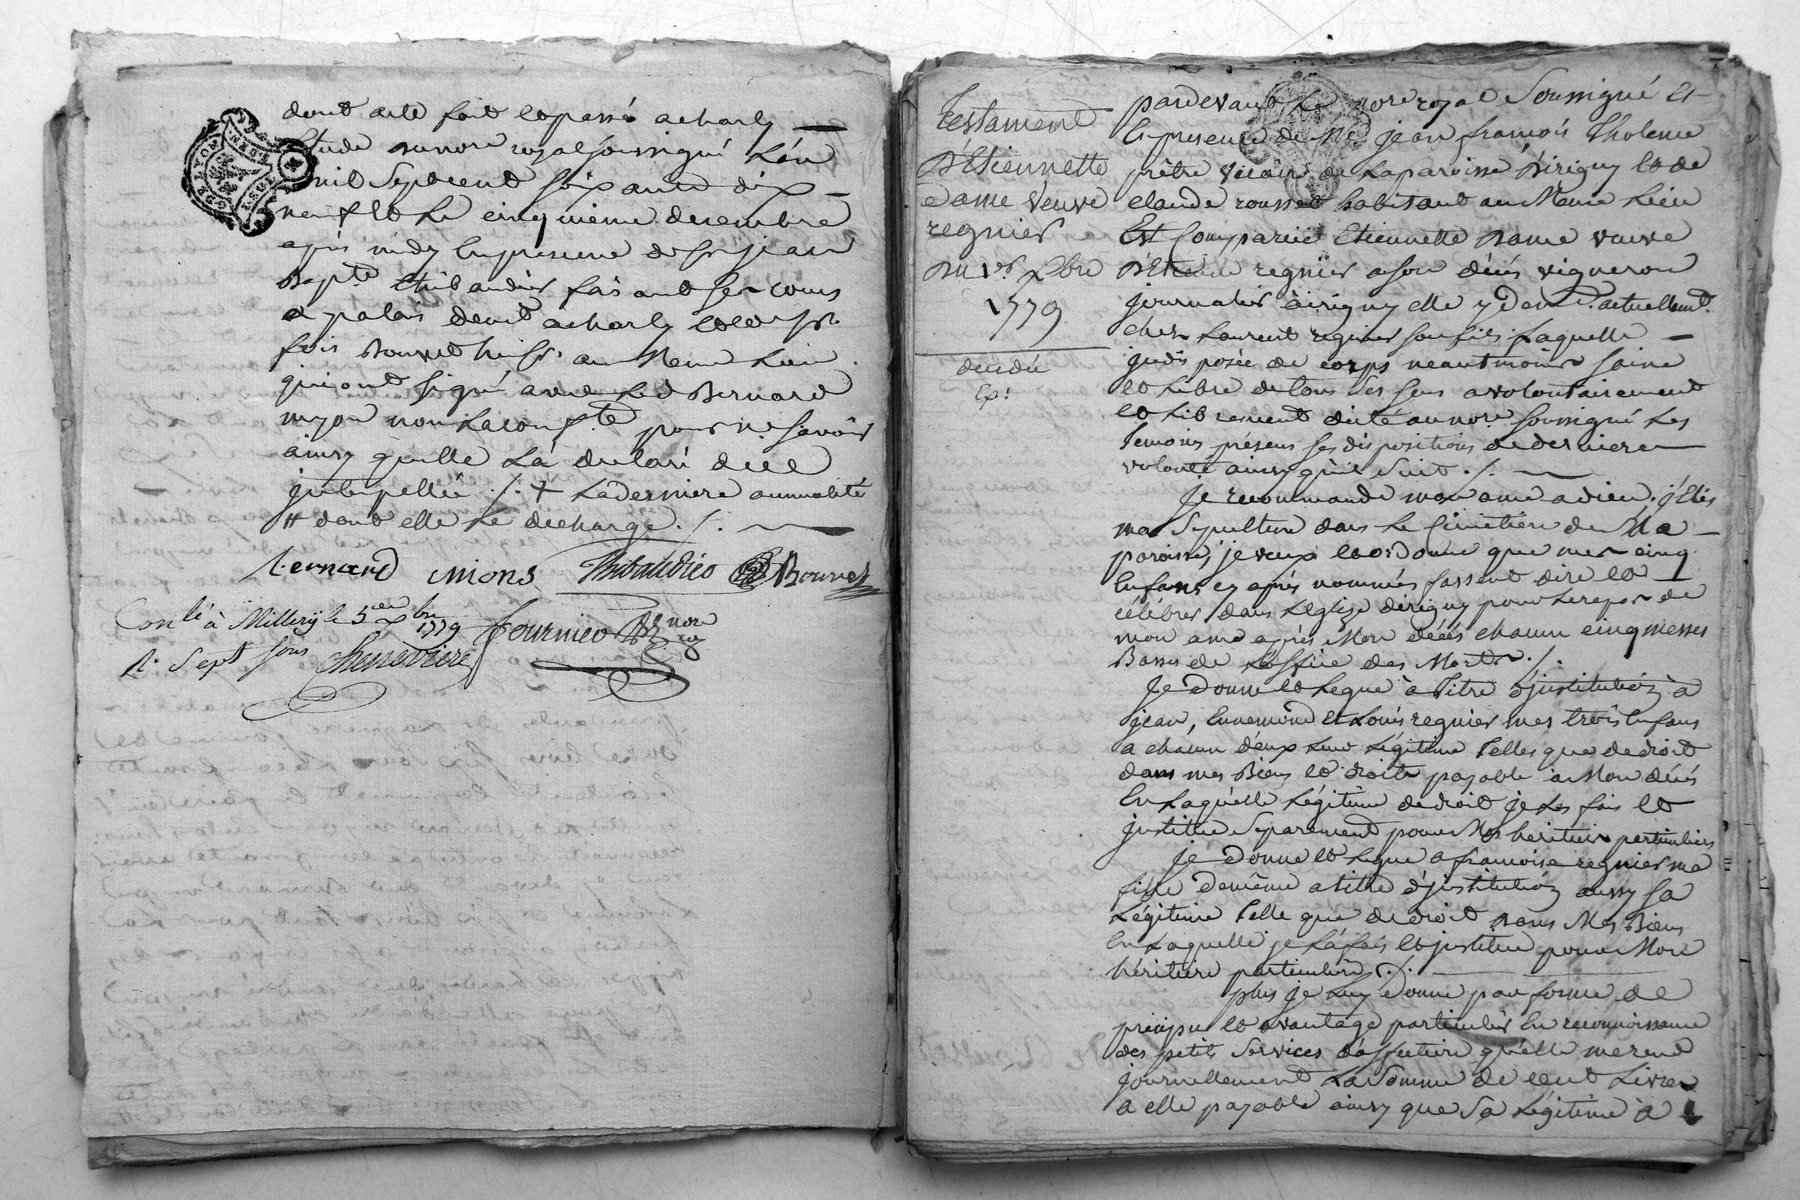 dont acte fait et passé a charly
Etude du nore royal soussigné L'an
mil Sept cent soix ante dix
neuf et Le cinquieme decembre
après midy En presence de Sr jean
Bapte thibaudier faisant ses cours
de palais dem.t a charly et de Sr.
fois Bouvet au Meme Lieu
qui ont signé avec Led Bernard
non La conf.te pour ne Savoir
ainsy qu'elle La declaré de ce
jnterpellée ./. + La derniere annualité
# dont elle Le decharge ./.
Bernard mions Thibaudier Bouvet
Conlé à Millery le 5 xbre 1779
Fournier nore roy
R. Sept sous Chenevriere
GEN. LYON
Testament
D'Etiennette
dame veuve
regnier
Du 1er. Xbre
1779
decedée
Exp:
pardevant Le nore royal Soussigné Et
En presence de Me. jean francois tholome
prêtre vicaire de La paroisse d'irigny et de
claude rousset habitant au Meme Lieu
Est Comparüe Etiennette dame veuve
d'Etienne regnier a son décés vigneron
journalier à irigny elle y dem.t actuellem.t
chez Laurent regnier son fils Laquelle
jndisposée de corps neantmoins saine
et Libre de tous Ses Sens a volontairement
et Librement dicté au nore. soussigné Les
temoins présens Ses dispositions de derniere
volonté ainsy qu'il Suit ./.
je recommande mon ame a dieu. j'Elis
ma Sepulture dans Le Cimetiere de Ma
paroisse, je veux et ordonne que mes cinq
Enfans cy aprés nommés fassent dire et
célébrer dans L'Eglize d'irigny pour Le repos de
mon ame aprés Mon décés chacun cinq messes
Basses de L'office des Morts ./.
Je donne et Legue à titre d'jnstitution à
jean, Ennemond et Louis regnier mes trois Enfans
a chacun d'eux Leur Légitime telles que de droit
dans mes Biens et droits payable a Mon décés
En Laquelle Légitime de droit je Les fais et
jnstitue Separement pour Mes heritiers particuliers
je donne et Legue a francoise regnier ma
fille de même a titre d'jnstitution aussy Sa
Légitime telle que de droit dans Mes Biens
En Laquelle je La fais et jnstitue pour Mon
héritiere particuliere ./.
plus je Luy donne par forme de
préciput et avantage particulier En reconnoissance
des petits Services d'affection qu'elle me rend
journellement La Somme de cent Livres
a elle payable ainsy que Sa Légitime à